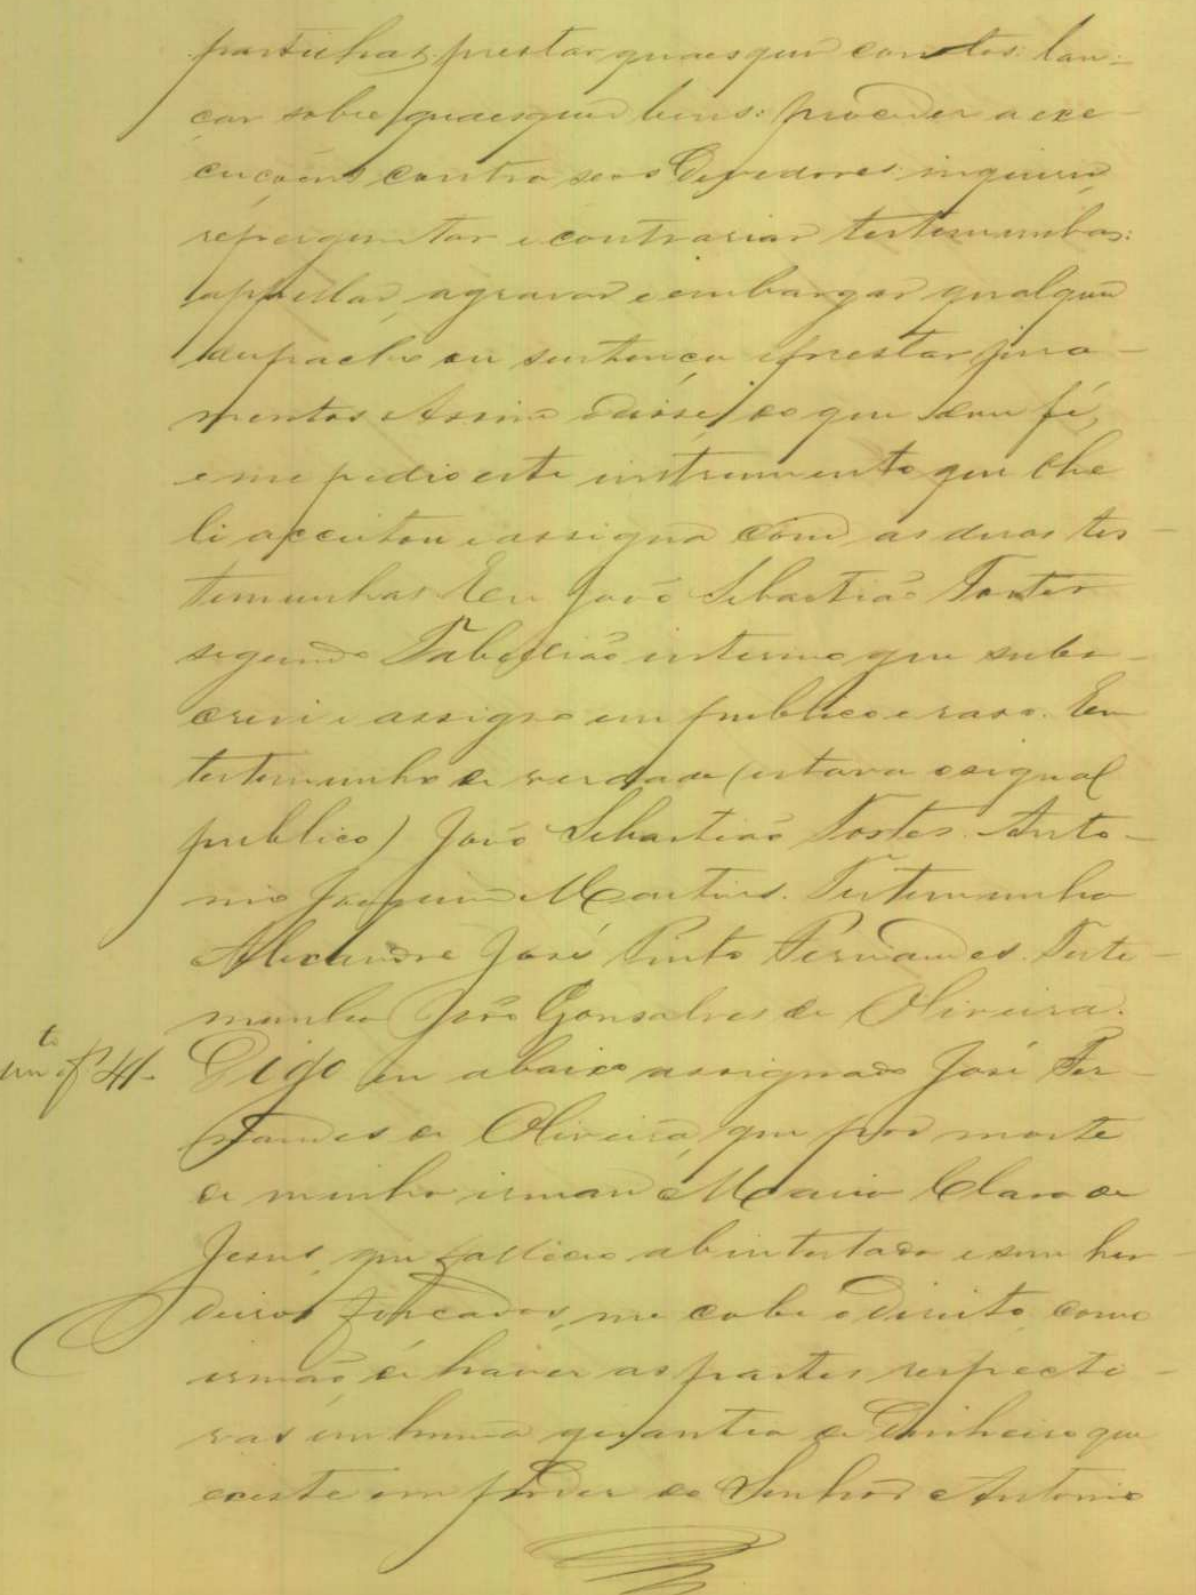 partilhas: prestar quaesquer contas: lan-
çar sobre quaesquer bens: proceder a exe-
cuçoens contra seos Devedores: inquirir,
repreguntar e contrariar testemunhas:
appellar, agravar e embargar qualquer
despacho ou sentença e prestar jura-
mentos Assim disse, do que dou fé,
e me pedio este instrumento que lhe
li acceitou e assigna com as duas tes-
temunhas Eu João Sebastião Tostes
segundo Tabellião interino que subs-
crevi e assigno em publico e raso. Em
testemunho de verdade (estava o signal
publico) João Sebastião Tostes. Anto-
nio Joaquim Martins. Testemunha
Alexandre José Pinto Fernandes. Teste-
munha João Gonsalves de Oliveira.
Digo eu abaixo assignado José Fer-
nandes de Oliveira, que por morte
de minha irman Maria Clara de
Jesus, que falleceo abintestado e sem her-
deiros forçados, me cabe o direito, como
irmão, de haver as partes respecti-
vas em huma quantia de dinheiro que
existe em poder do Senhor Antonio